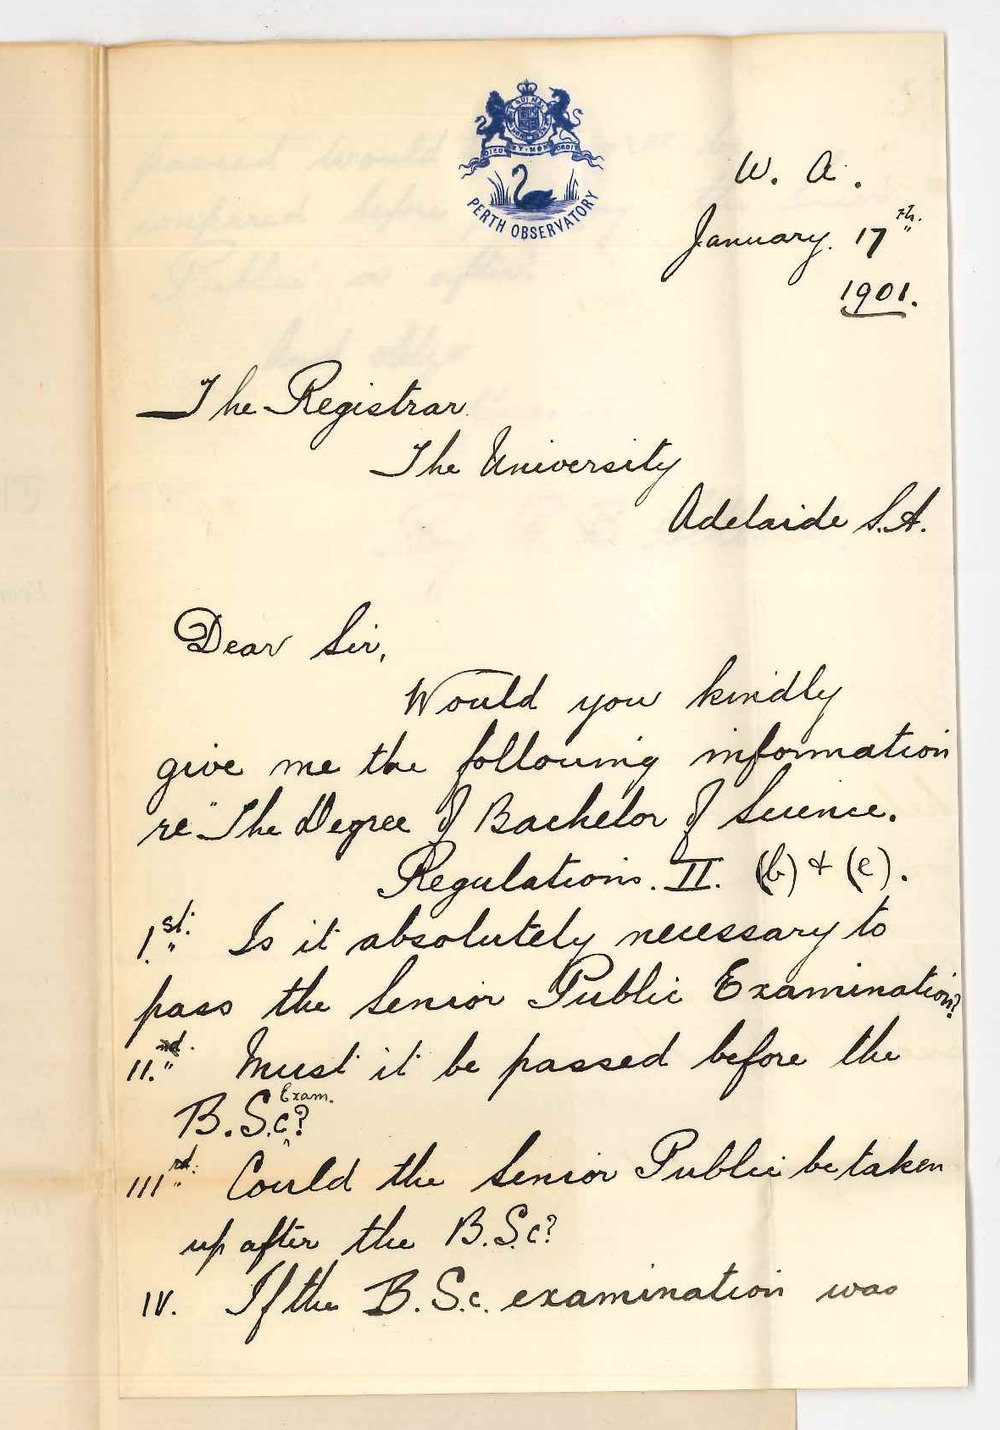 DIEU ET MON DROIT
PERTH OBSERVATORY
W. A.
January. 17th.
1901.
The Registrar
The University
Adelaide S.A.
Dear Sir,
Would you kindly
give me the following information
re "The Degree of Bachelor of Science.
Regulations. II. (b) + (c).
I.st. Is it absolutely necessary to
pass the Senior Public Examination?
II.nd. Must it be passed before the
B.Sc. Exam.?
IIIrd. Could the Senior Public be taken
up after the B.Sc?
IV. If the B.Sc. examination was